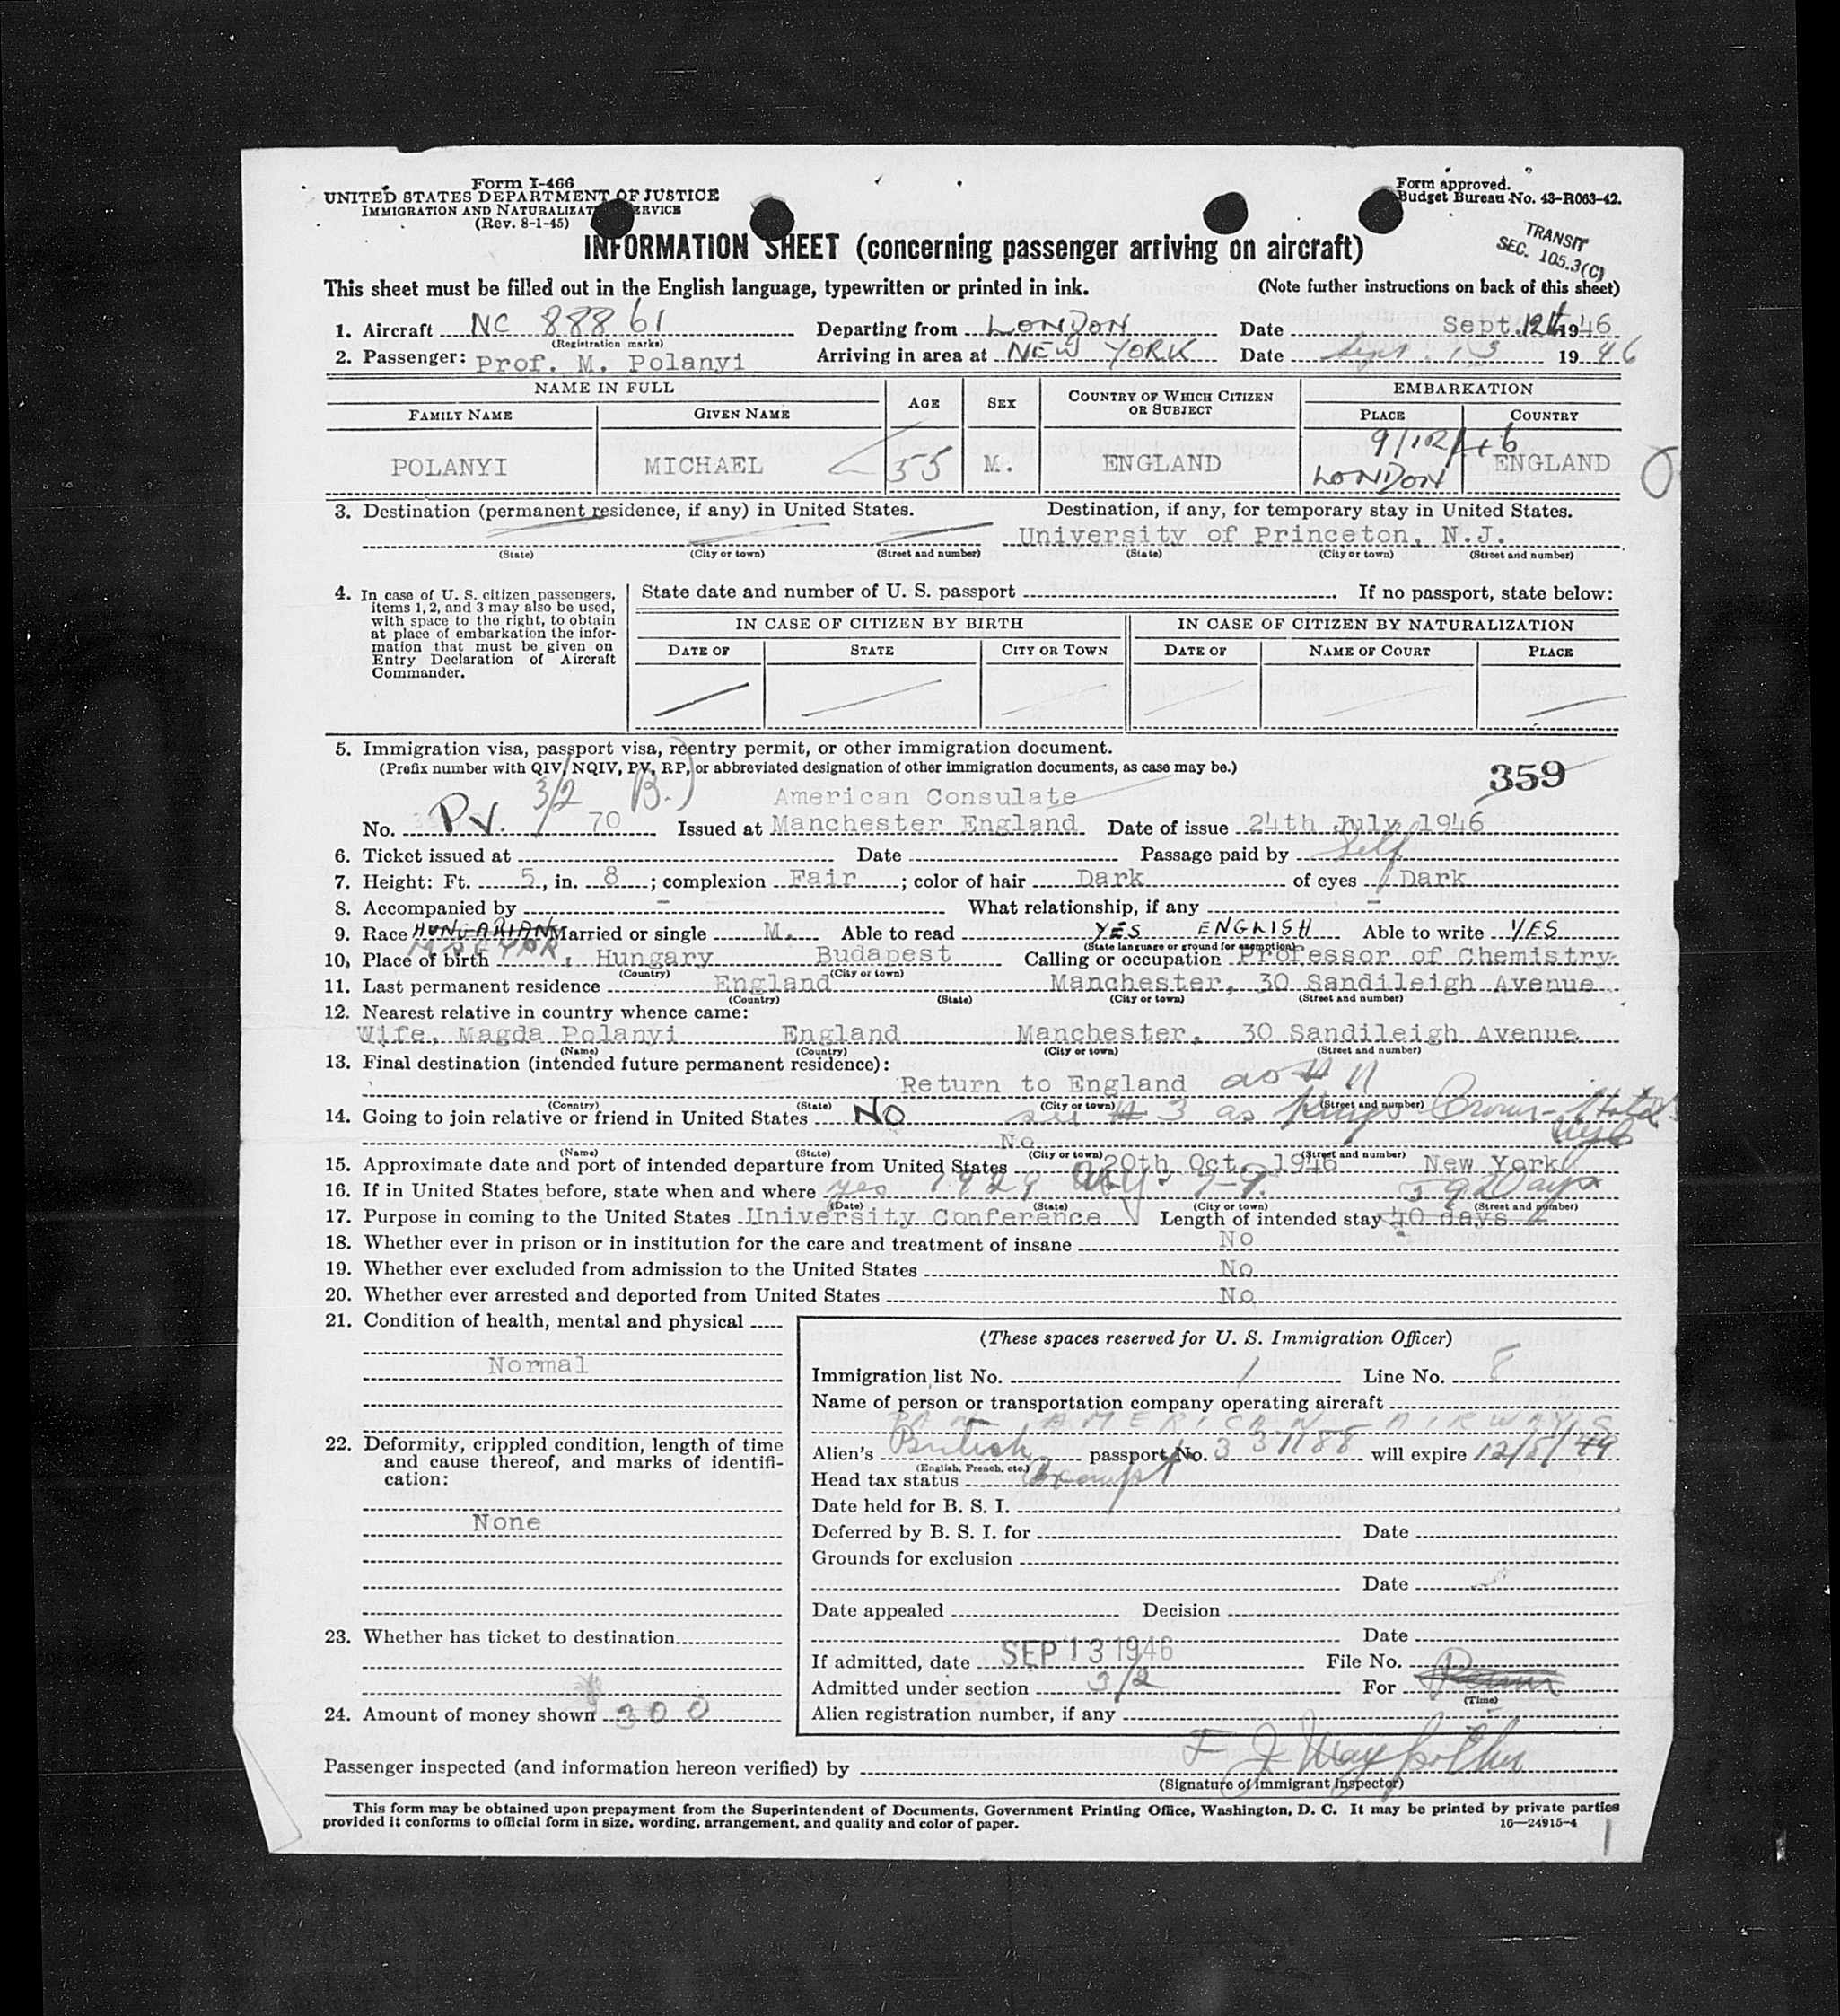 Form I-466
UNITED STATES DEPARTMENT OF JUSTICE
IMMIGRATION AND NATURALIZATION SERVICE
(Rev. 8-1-45)
Form approved.
Budget Bureau No. 43-R063-42.
TRANSIT
SEC. 105.3(C)
INFORMATION SHEET (concerning passenger arriving on aircraft)
This sheet must be filled out in the English language, typewritten or printed in ink. (Note further instructions on back of this sheet)
1. Aircraft NC 88861 Departing from LONDON Date Sept. 12th 1946
(Registration marks)
2. Passenger: Prof. M. Polanyi Arriving in area at NEW YORK Date Sept. 13 1946
NAME IN FULL AGE SEX COUNTRY OF WHICH CITIZEN OR SUBJECT EMBARKATION
FAMILY NAME GIVEN NAME PLACE COUNTRY
9/12/46
POLANYI MICHAEL 55 M. ENGLAND LONDON ENGLAND
3. Destination (permanent residence, if any) in United States. Destination, if any, for temporary stay in United States.
University of Princeton, N.J.
(State) (City or town) (Street and number) (State) (City or town) (Street and number)
4. In case of U. S. citizen passengers, items 1, 2, and 3 may also be used, with space to the right, to obtain at place of embarkation the information that must be given on Entry Declaration of Aircraft Commander.
State date and number of U. S. passport If no passport, state below:
IN CASE OF CITIZEN BY BIRTH IN CASE OF CITIZEN BY NATURALIZATION
DATE OF STATE CITY OR TOWN DATE OF NAME OF COURT PLACE
5. Immigration visa, passport visa, reentry permit, or other immigration document.
(Prefix number with QIV, NQIV, PV, RP, or abbreviated designation of other immigration documents, as case may be.)
359
3/2 B.)
American Consulate
No. P.V. 70 Issued at Manchester England Date of issue 24th July 1946
6. Ticket issued at Date Passage paid by Self
7. Height: Ft. 5, in. 8; complexion Fair; color of hair Dark of eyes Dark
8. Accompanied by - What relationship, if any -
9. Race HUNGARIAN Married or single M. Able to read YES ENGLISH Able to write YES
MAGYAR
(State language or ground for exemption)
10. Place of birth Hungary Budapest Calling or occupation Professor of Chemistry
(Country) (City or town)
11. Last permanent residence England Manchester, 30 Sandileigh Avenue
(Country) (State) (City or town) (Street and number)
12. Nearest relative in country whence came:
Wife, Magda Polanyi England Manchester, 30 Sandileigh Avenue.
(Name) (Country) (City or town) (Street and number)
13. Final destination (intended future permanent residence):
Return to England as # 11
(Country) (State) (City or town) (Street and number)
14. Going to join relative or friend in United States NO see # 3 as Kings Crown Hotel
No NYC
(Name) (State) (City or town) (Street and number)
15. Approximate date and port of intended departure from United States 20th Oct. 1946 New York
16. If in United States before, state when and where yes 1929
(Date) (State) (City or town) (Street and number)
17. Purpose in coming to the United States University Conference Length of intended stay 40 days
18. Whether ever in prison or in institution for the care and treatment of insane No
19. Whether ever excluded from admission to the United States No
20. Whether ever arrested and deported from United States No
21. Condition of health, mental and physical
Normal
22. Deformity, crippled condition, length of time and cause thereof, and marks of identification:
None
23. Whether has ticket to destination
24. Amount of money shown 300
(These spaces reserved for U. S. Immigration Officer)
Immigration list No. 1 Line No. 8
Name of person or transportation company operating aircraft
PAN AMERICAN AIRWAYS
Alien's British passport No. 331188 will expire 12/8/49
(English, French, etc.)
Head tax status Exempt
Date held for B. S. I.
Deferred by B. S. I. for Date
Grounds for exclusion
Date
Date appealed Decision
Date
If admitted, date SEP 13 1946 File No.
Admitted under section 3/2 For
(Time)
Alien registration number, if any -
Passenger inspected (and information hereon verified) by F J
(Signature of Immigrant Inspector)
This form may be obtained upon prepayment from the Superintendent of Documents, Government Printing Office, Washington, D. C. It may be printed by private parties
provided it conforms to official form in size, wording, arrangement, and quality and color of paper. 16—24915-4